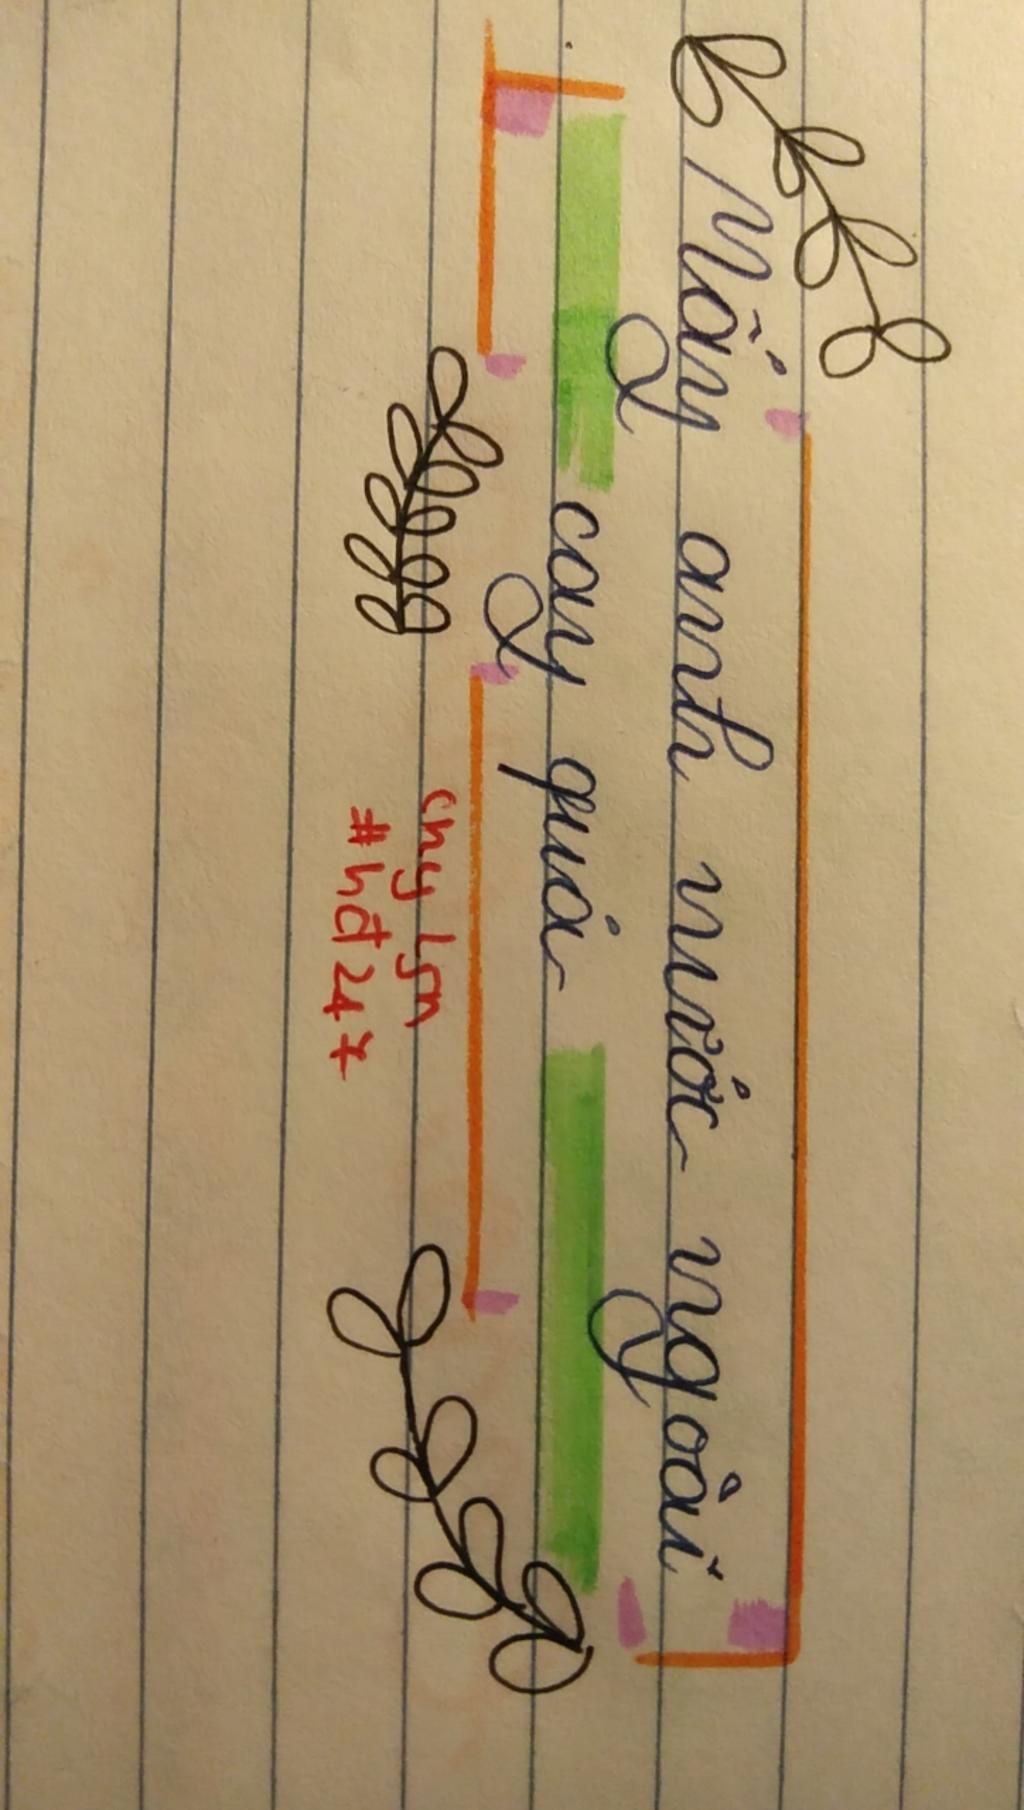 Mấy anh nước ngoài
cay quá
chy lyn
#hđ247